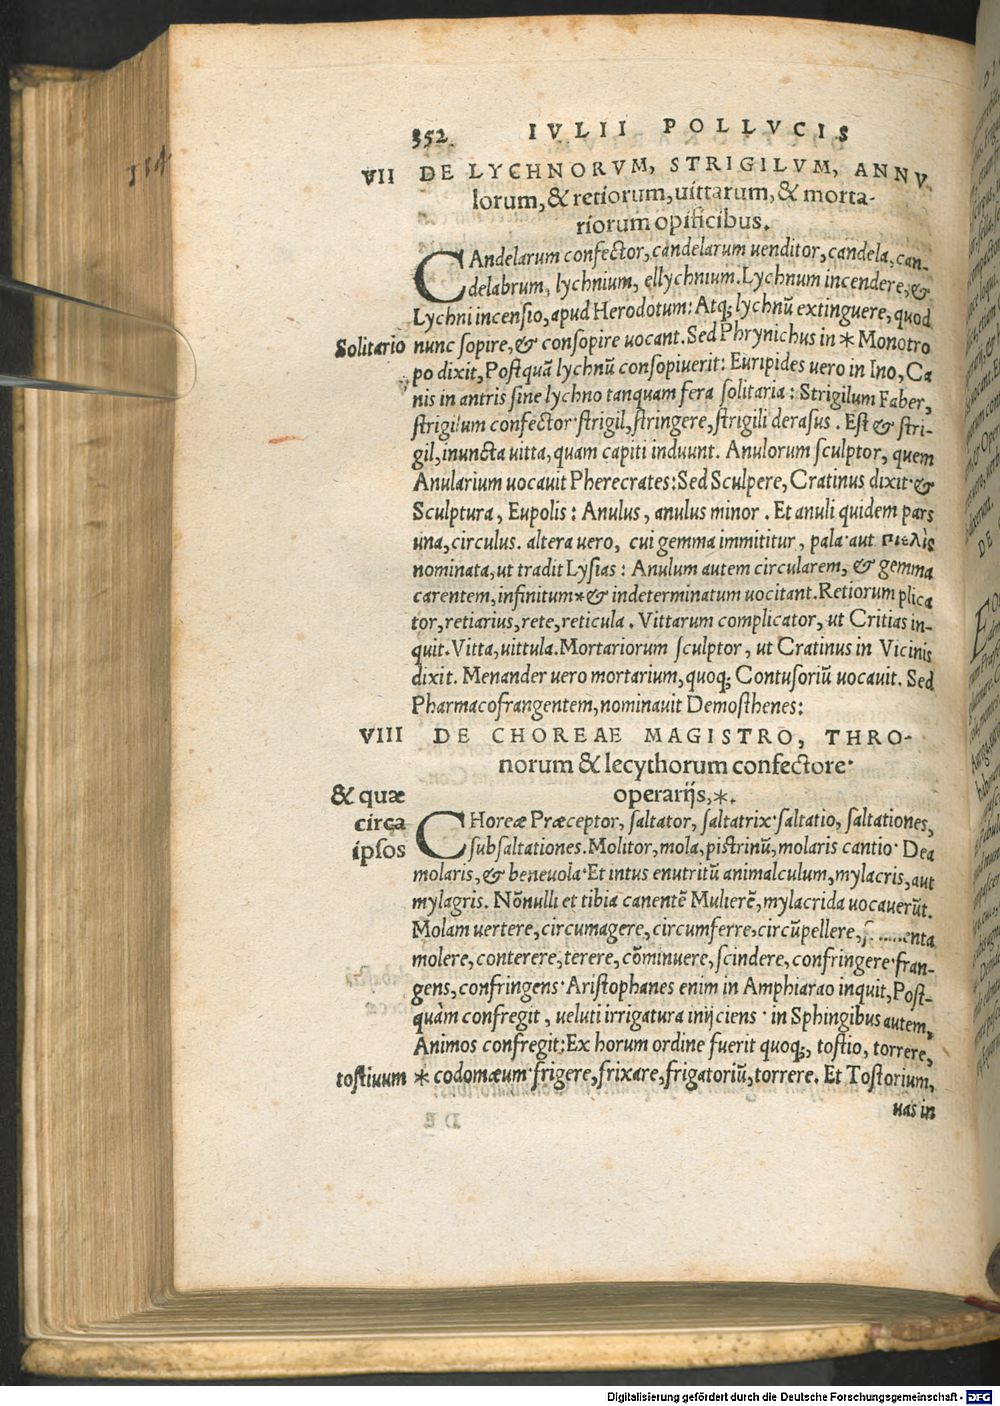 352 IVLII POLLVCIS
VII DE LYCHNORVM, STRIGILVM, ANNV
lorum, & retiorum, uittarum, & morta-
riorum opificibus.
CAndelarum confector, candelarum uenditor, candela, can-
delabrum, lychnium, ellychnium. Lychnum incendere, &
Lychni incensio, apud Herodotum: Atq; lychnū extinguere, quod
Solitario nunc sopire, & consopire uocant. Sed Phrynichus in * Monotro
po dixit, Postquā lychnū consopiuerit: Euripides uero in Ino, Ca
nis in antris sine lychno tanquam fera solitaria: Strigilum Faber,
strigilum confector· strigil, stringere, strigili derasus. Est & stri-
gil, inuncta uitta, quam capiti induunt. Anulorum sculptor, quem
Anularium uocauit Pherecrates: Sed Sculpere, Cratinus dixit· &
Sculptura, Eupolis: Anulus, anulus minor. Et anuli quidem pars
una, circulus. altera uero, cui gemma immititur, pala· aut πιελὶς
nominata, ut tradit Lysias: Anulum autem circularem, & gemma
carentem, infinitum* & indeterminatum uocitant. Retiorum plica
tor, retiarius, rete, reticula. Vittarum complicator, ut Critias in-
quit. Vitta, uittula. Mortariorum sculptor, ut Cratinus in Vicinis
dixit. Menander uero mortarium, quoq; Contusoriū uocauit. Sed
Pharmacofrangentem, nominauit Demosthenes:
VIII DE CHOREAE MAGISTRO, THRO-
norum & lecythorum confectore·
& quæ operarijs, *.
circa CHoreæ Præceptor, saltator, saltatrix· saltatio, saltationes,
ipsos subsaltationes. Molitor, mola, pistrinū, molaris cantio· Dea
molaris, & beneuola· Et intus enutritū animalculum, mylacris, aut
mylagris. Nōnulli et tibia canentē Mulierē, mylacrida uocauerūt.
Molam uertere, circumagere, circumferre, circūpellere,
molere, conterere, terere, cōminuere, scindere, confringere· fran-
gens, confringens· Aristophanes enim in Amphiarao inquit, Post-
quàm confregit, ueluti irrigatura inijciens· in Sphingibus autem,
Animos confregit: Ex horum ordine fuerit quoq;, tostio, torrere,
tostiuum * codomæum· frigere, frixare, frigatoriū, torrere. Et Tostorium,
uas in
Digitalisierung gefördert durch die Deutsche Forschungsgemeinschaft - DFG